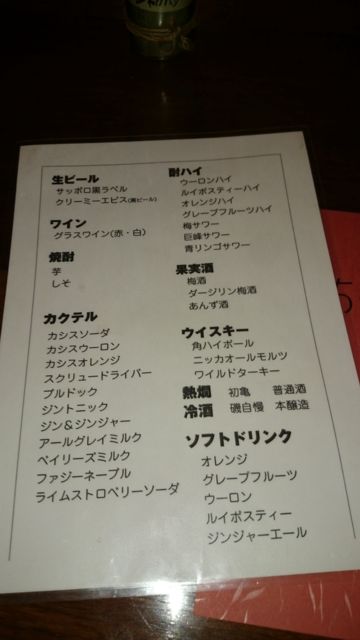 生ビール
サッポロ黒ラベル
クリーミーエビス(黒ビール)
ワイン
グラスワイン(赤・白)
焼酎
芋
しそ
カクテル
カシスソーダ
カシスウーロン
カシスオレンジ
スクリュードライバー
ブルドック
ジントニック
ジン&ジンジャー
アールグレイミルク
ベイリーズミルク
ファジーネーブル
ライムストロベリーソーダ
酎ハイ
ウーロンハイ
ルイボスティーハイ
オレンジハイ
グレープフルーツハイ
梅サワー
巨峰サワー
青リンゴサワー
果実酒
梅酒
ダージリン梅酒
あんず酒
ウイスキー
角ハイボール
ニッカオールモルツ
ワイルドターキー
熱燗 初亀 普通酒
冷酒 磯自慢 本醸造
ソフトドリンク
オレンジ
グレープフルーツ
ウーロン
ルイボスティー
ジンジャーエール